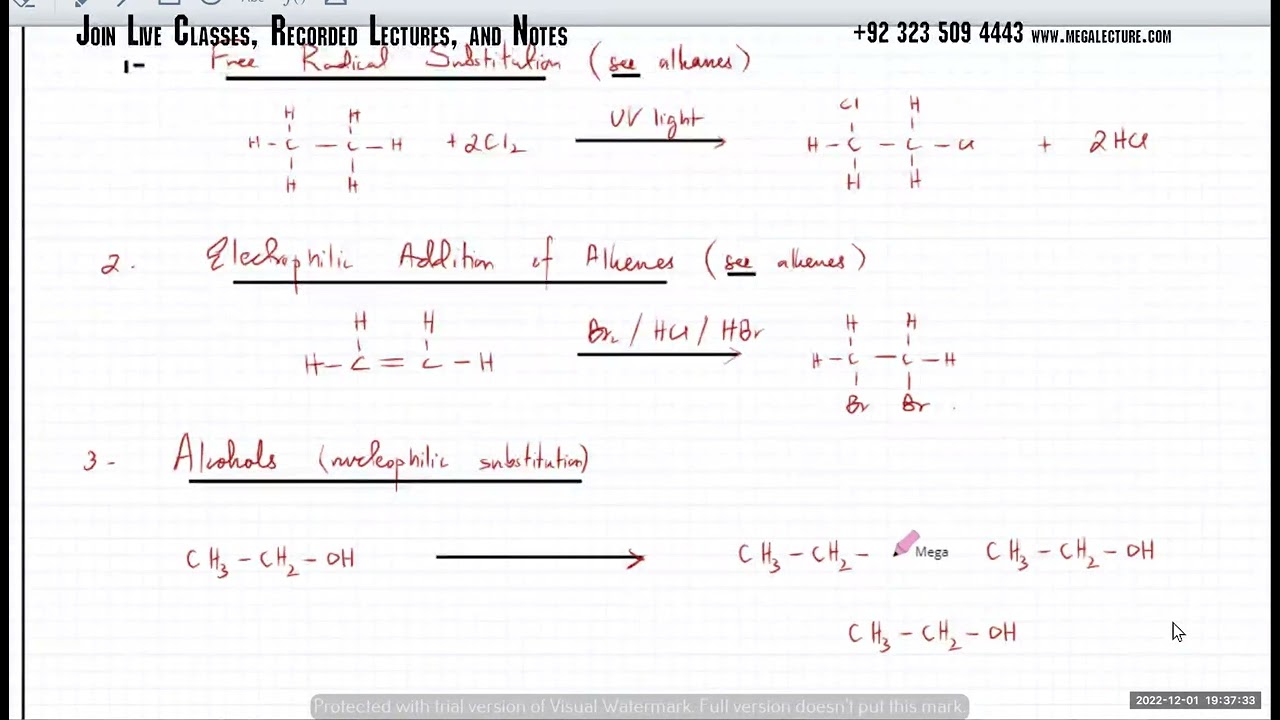 JOIN LIVE CLASSES, RECORDED LECTURES, AND NOTES
+92 323 509 4443 WWW.MEGALECTURE.COM
1- Free Radical Substitution (see alkanes)
H H Cl H
H - C - C - H + 2Cl2 UV light H - C - C - Cl + 2HCl
H H H H
2. Electrophilic Addition of Alkenes (see alkenes)
H H Br2 / HCl / HBr H H
H - C = C - H H - C - C - H
Br Br
3- Alcohols (nucleophilic substitution)
CH3 - CH2 - OH CH3 - CH2 - Mega CH3 - CH2 - OH
CH3 - CH2 - OH
2022-12-01 19:37:33
Protected with trial version of Visual Watermark. Full version doesn't put this mark.